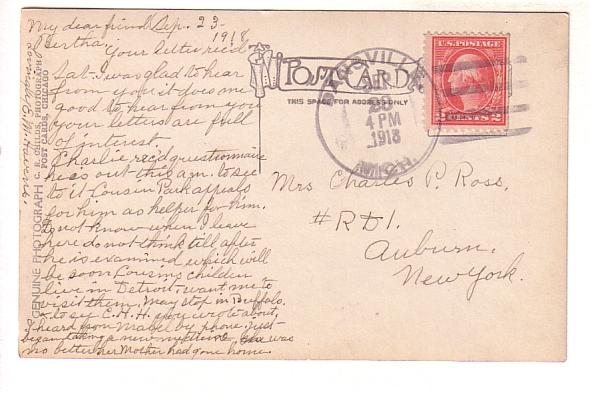 My dear friend Sep. 23-
1918
Bertha Your letter rec'd
Sat- I was glad to hear
from you it does me
good to hear from you
your letters are full
of interest.
Charlie rec'd questionnaire
he is out this a.m. to see
to it Cousin Park appeals
for him as helper for him.
Do not know when I leave
here do not think till after
he is examined which will
be soon Cousins children
live in Detroit, want me to
visit them. May stop in Buffalo.
to see C. H. H. you wrote about,
I heard from Mabel by phone, just
began taking a new was
no better her Mother had gone home.
GENUINE PHOTOGRAPH C. R. CHILDS, PHOTOGRAPHER
POST CARDS, CHICAGO
POST CARD
THIS SPACE FOR ADDRESS ONLY
4 PM
1918
MICH.
U.S. POSTAGE
2 CENTS 2
Mrs Charles P. Ross.
# RD1.
Auburn,
New York.